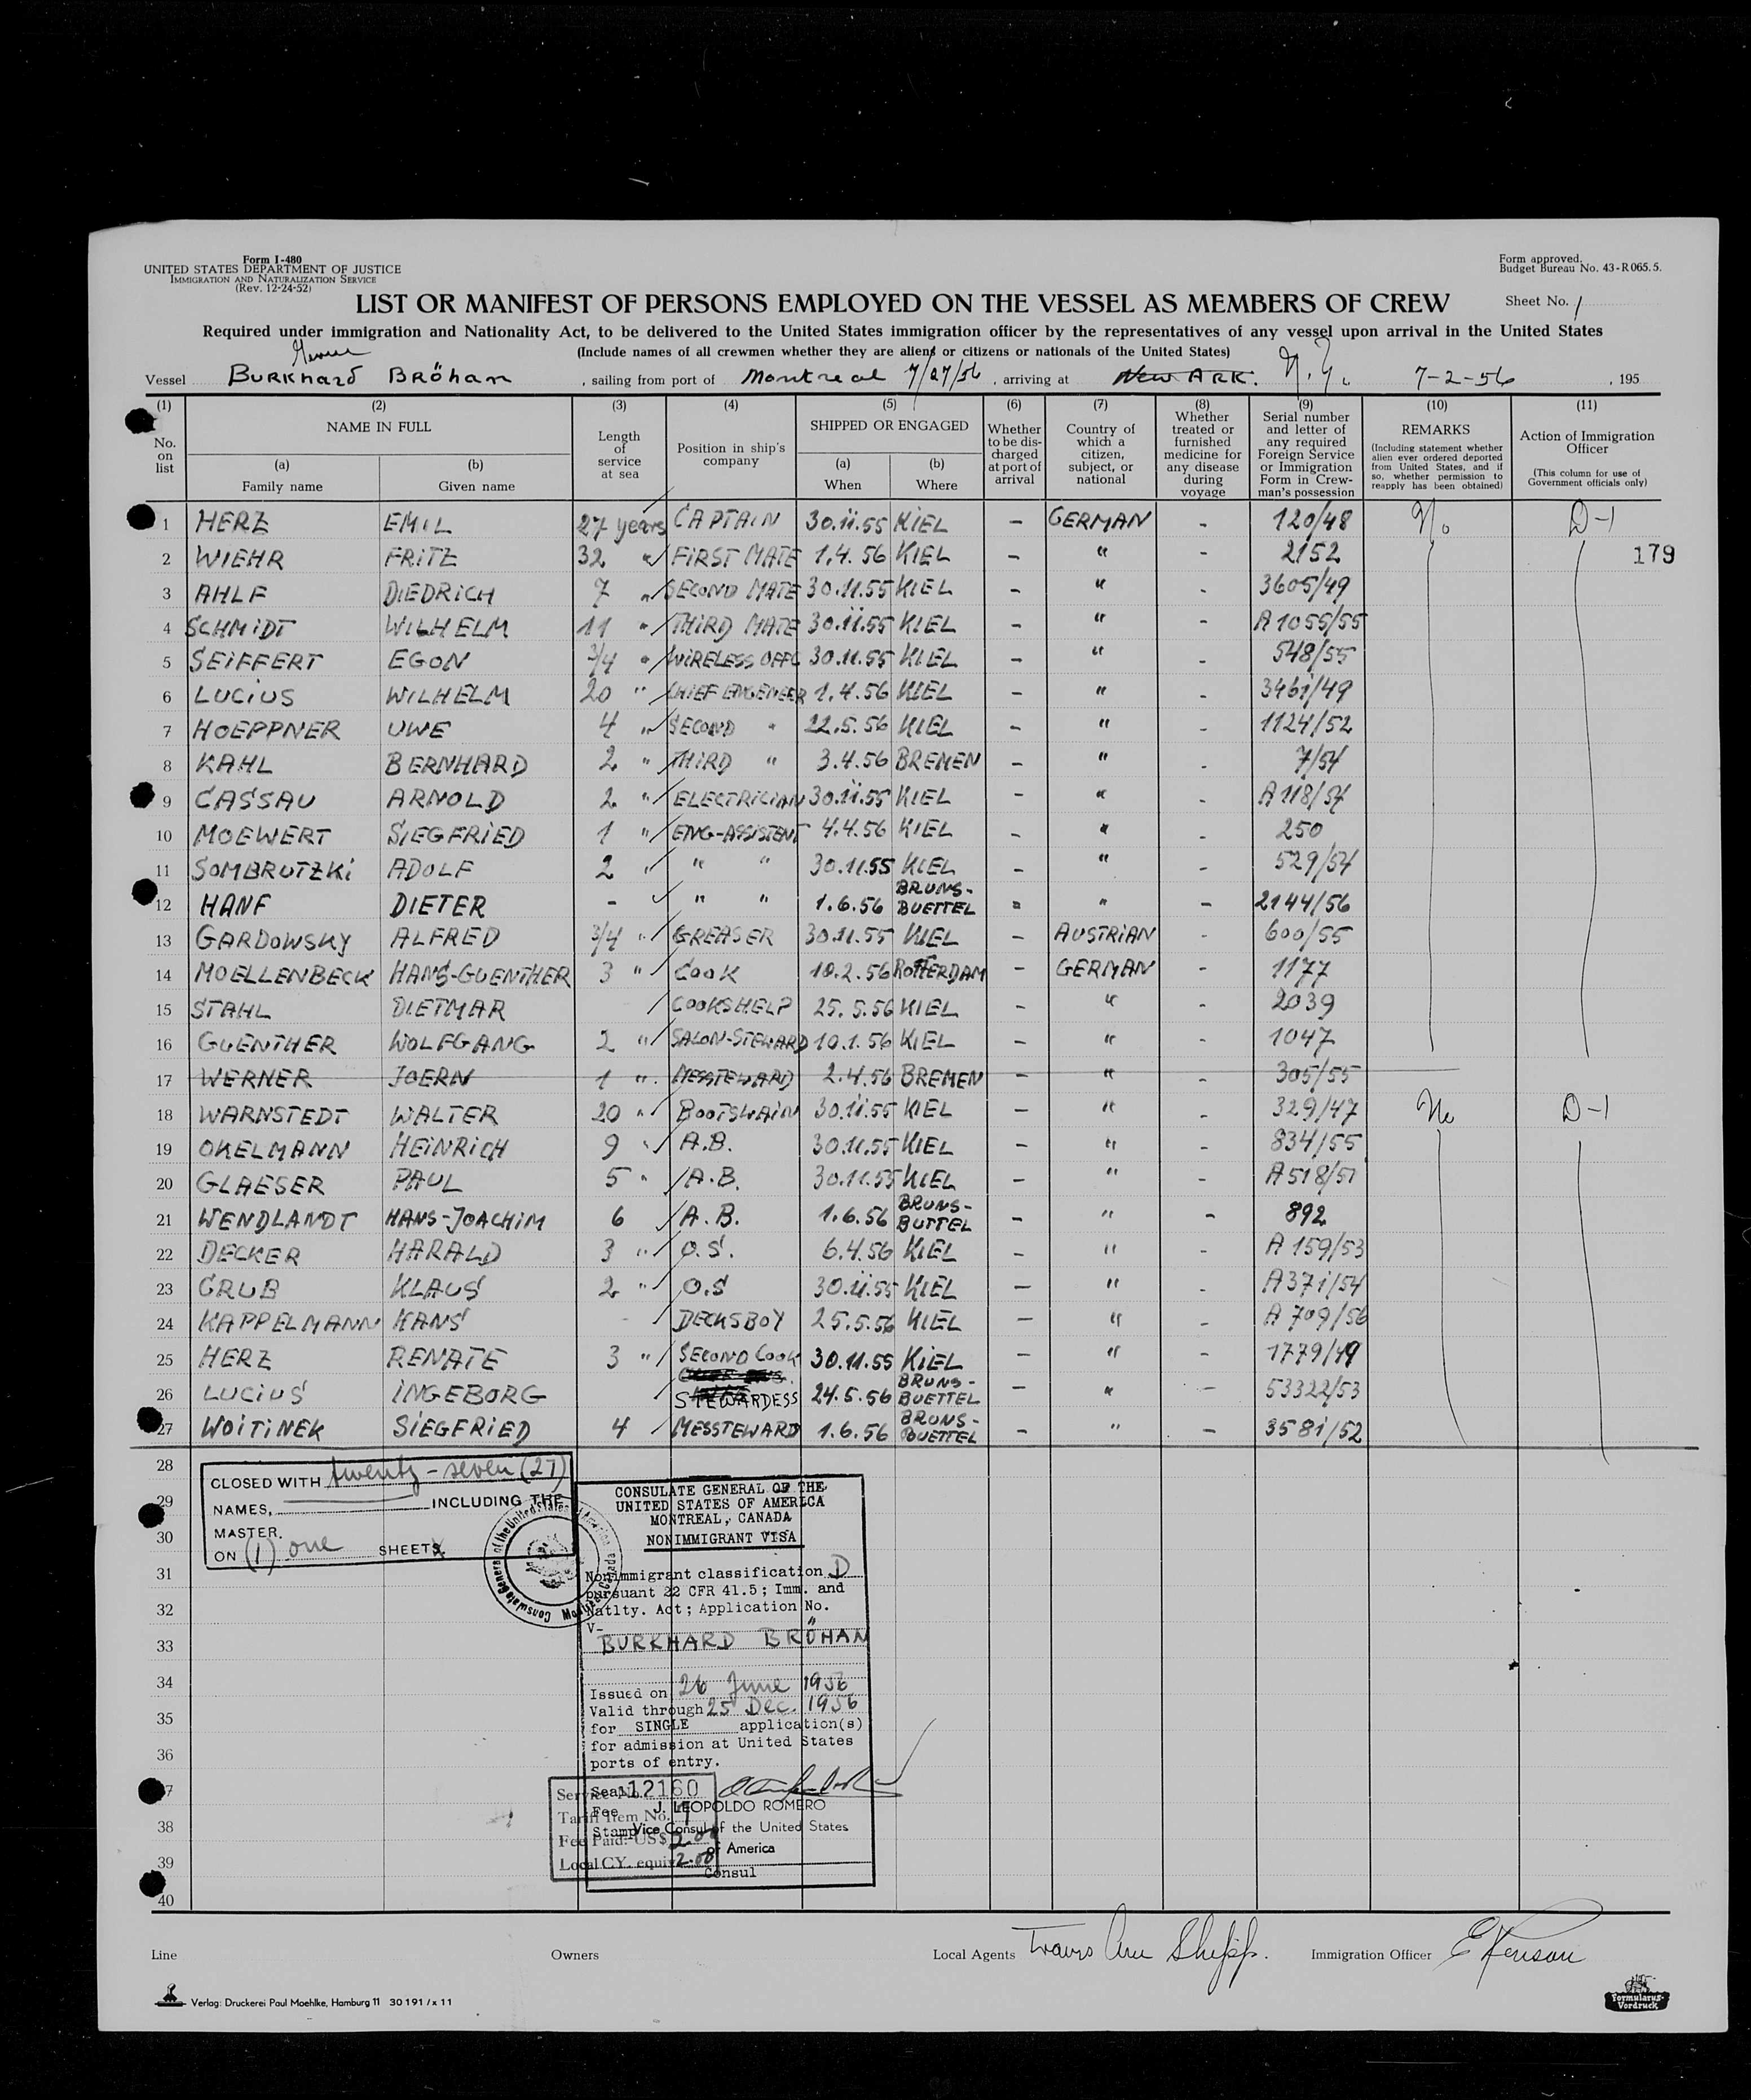 Form I-480
UNITED STATES DEPARTMENT OF JUSTICE
IMMIGRATION AND NATURALIZATION SERVICE
(Rev. 12-24-52)
Form approved.
Budget Bureau No. 43-R065.5.
LIST OR MANIFEST OF PERSONS EMPLOYED ON THE VESSEL AS MEMBERS OF CREW
Sheet No. 1
Required under immigration and Nationality Act, to be delivered to the United States immigration officer by the representatives of any vessel upon arrival in the United States
(Include names of all crewmen whether they are aliens or citizens or nationals of the United States)
Vessel BURKHARD BRÖHAN, sailing from port of Montreal 7/27/56, arriving at NEWARK. N.Y. 7-2-56, 195
(1) (2) (3) (4) (5) (6) (7) (8) (9) (10) (11)
No. on list
NAME IN FULL
(a) Family name
(b) Given name
Length of service at sea
Position in ship's company
SHIPPED OR ENGAGED
(a) When
(b) Where
Whether to be discharged at port of arrival
Country of which a citizen, subject, or national
Whether treated or furnished medicine for any disease during voyage
Serial number and letter of any required Foreign Service or Immigration Form in Crewman's possession
REMARKS
(Including statement whether alien ever ordered deported from United States, and if so, whether permission to reapply has been obtained)
Action of Immigration Officer
(This column for use of Government officials only)
1 HERZ EMIL 27 years CAPTAIN 30.11.55 KIEL – GERMAN - 120/48 No D-1
2 WIEHR FRITZ 32 " FIRST MATE 1.4.56 KIEL – " - 2152 179
3 AHLF DIEDRICH 7 " SECOND MATE 30.11.55 KIEL – " - 3605/49
4 SCHMIDT WILHELM 11 " THIRD MATE 30.11.55 KIEL – " - A 1055/55
5 SEIFFERT EGON 3/4 " WIRELESS OFFC 30.11.55 KIEL – " - 548/55
6 LUCIUS WILHELM 20 " CHIEF ENGENEER 1.4.56 KIEL – " - 3461/49
7 HOEPPNER UWE 4 " SECOND " 22.5.56 KIEL – " - 1124/52
8 KAHL BERNHARD 2 " THIRD " 3.4.56 BREMEN – " - 7/54
9 CASSAU ARNOLD 2 " ELECTRICIAN 30.11.55 KIEL – " - A 118/54
10 MOEWERT SIEGFRIED 1 " ENG-ASSISTENT 4.4.56 KIEL – " - 250
11 SOMBRUTZKI ADOLF 2 " " " 30.11.55 KIEL – " - 529/54
12 HANF DIETER - " " 1.6.56 BRUNS-BUETTEL – " - 2144/56
13 GARDOWSKY ALFRED 3/4 " GREASER 30.11.55 KIEL – AUSTRIAN - 600/55
14 MOELLENBECK HANS-GUENTHER 3 " COOK 10.2.56 ROTTERDAM – GERMAN - 1177
15 STAHL DIETMAR COOKSHELP 25.5.56 KIEL – " - 2039
16 GUENTHER WOLFGANG 2 " SALON-STEWARD 10.1.56 KIEL – " - 1047
17 WERNER JOERN 1 " MESSTEWARD 2.4.56 BREMEN – " - 305/55
18 WARNSTEDT WALTER 20 " BOOTSWAIN 30.11.55 KIEL – " - 329/47 No D-1
19 OKELMANN HEINRICH 9 " A.B. 30.11.55 KIEL – " - 834/55
20 GLAESER PAUL 5 " A.B. 30.11.55 KIEL – " - A 518/51
21 WENDLANDT HANS-JOACHIM 6 A.B. 1.6.56 BRUNS-BUTTEL – " - 892
22 DECKER HARALD 3 " O.S. 6.4.56 KIEL – " - A 159/53
23 GRUB KLAUS 2 " O.S 30.11.55 KIEL – " - A371/54
24 KAPPELMANN HANS - DECKSBOY 25.5.56 KIEL – " - A 709/56
25 HERZ RENATE 3 " SECOND COOK 30.11.55 KIEL – " - 1779/49
26 LUCIUS INGEBORG STEWARDESS 24.5.56 BRUNS-BUETTEL – " - 53322/53
27 WOITINEK SIEGFRIED 4 MESSTEWARD 1.6.56 BRUNS-BUETTEL – " - 3581/52
28
29
30
31
32
33
34
35
36
37
38
39
40
CLOSED WITH twenty-seven (27)
NAMES, INCLUDING THE
MASTER.
ON (1) one SHEETS
Consulate General of the United States of America Montreal, Canada
CONSULATE GENERAL OF THE
UNITED STATES OF AMERICA
MONTREAL, CANADA
NONIMMIGRANT VISA
Nonimmigrant classification D
pursuant 22 CFR 41.5; Imm. and
Natlty. Act; Application No.
V-
BURKHARD BRÖHAN
Issued on 26 June 1956
Valid through 25 Dec. 1956
for SINGLE application(s)
for admission at United States
ports of entry.
Seal
Fee
Stamp
J. LEOPOLDO ROMERO
Vice Consul of the United States
of America
Consul
Service No. 12160
Tariff Item No. 7
Fee Paid: US$ 2.00
Local CY. equiv. 2.00
Line
Owners
Local Agents
Immigration Officer
Verlag: Druckerei Paul Moehlke, Hamburg 11 30191/x 11
Formularus-
Vordruck